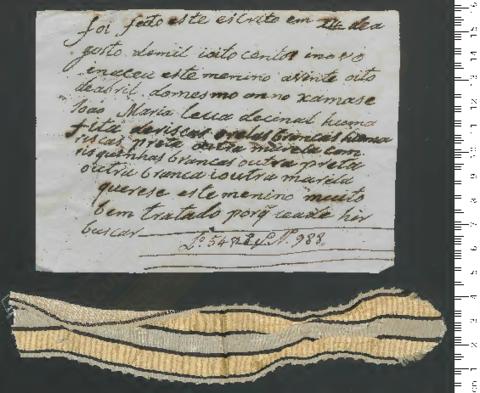 foi feito este escrito em 24 dea
gosto demil ioito centos inovo
inaceu este menino avinte oito
deabril domesmo anno xamase
João Maria leva decinal huma
fita deriscas orelas brancas huma
riscas preta outra marela com
risquinhas brancas outra preta
outra branca ioutra marela
querese este menino muito
bem tratado porq̃ seade hir
buscar
Lº 54 N. 988.
cm 1 2 3 4 5 6 7 8 9 10 11 12 13 14 15 16